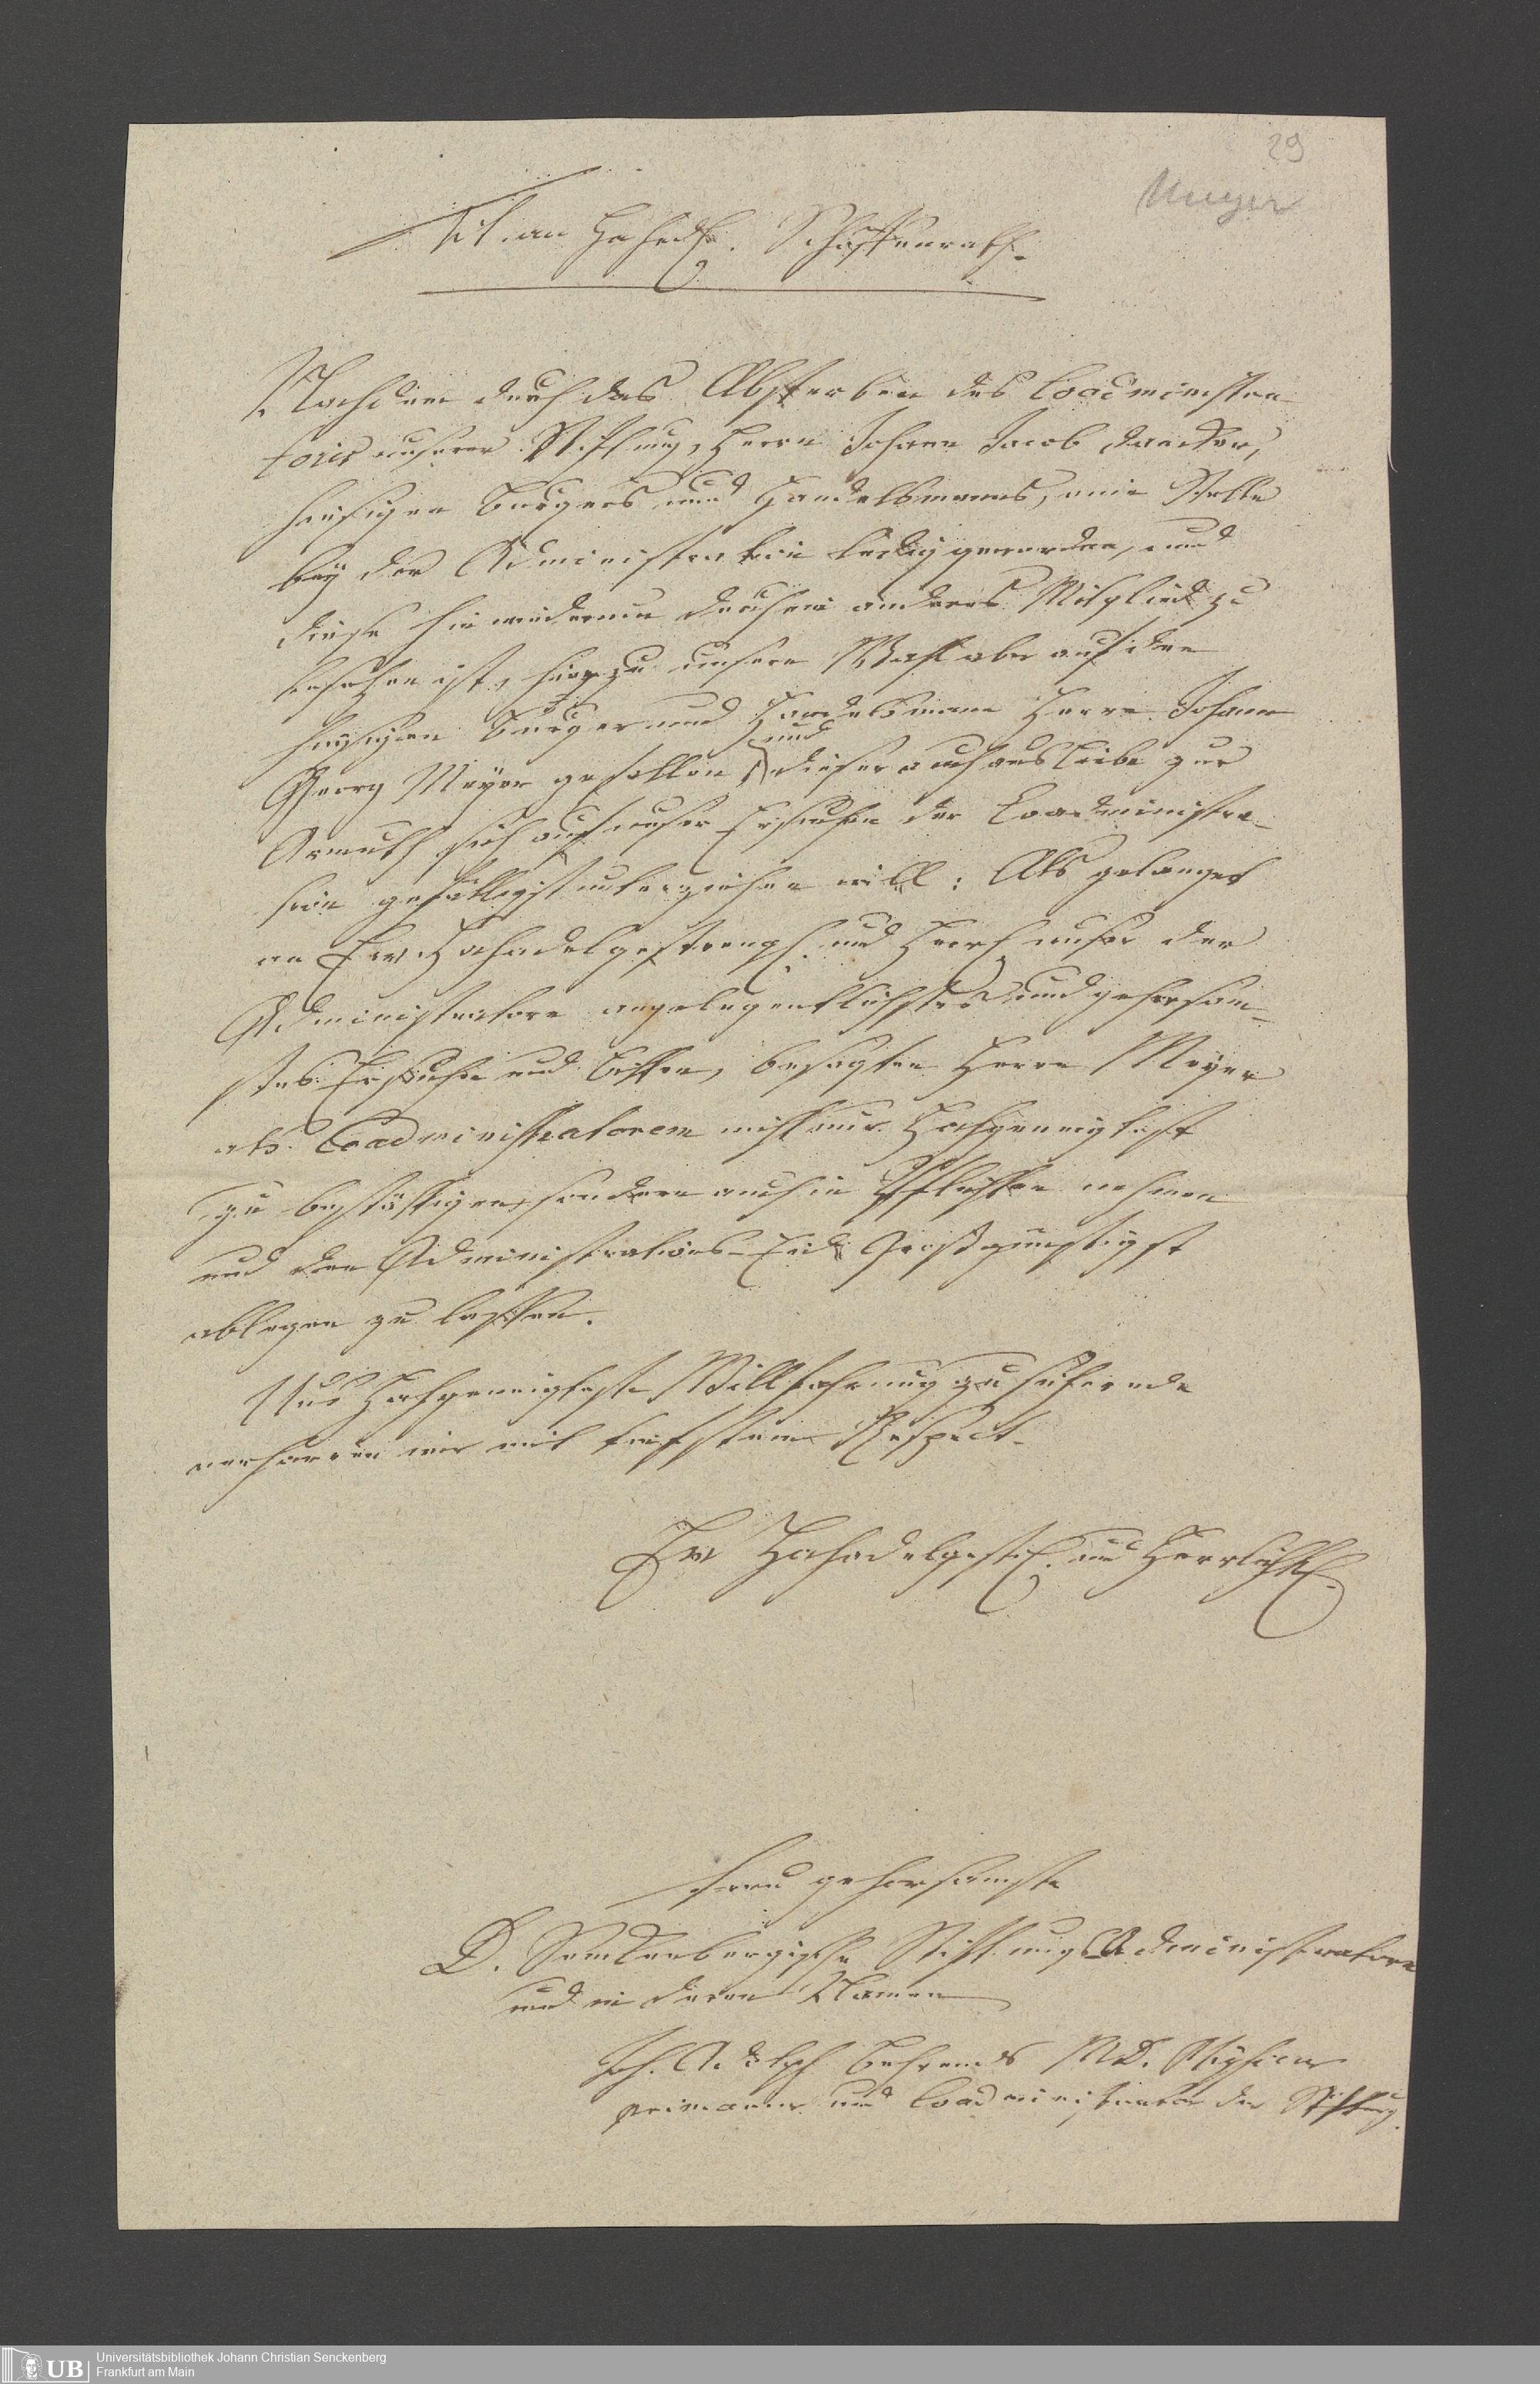 29
Meyer
Tit. an Hochedl. Schöffenrath.
Nachdem durch das Absterben des Coadministra
toris unserer Stiftung, Herrn Johann Jacob
hiesigen Burgers und Handelsmanns, eine Stelle
bey der Administration ledig geworden, und
diese hinwiederum durch ein anderes Mitglied zu
besetzen ist, hiezu unsere Wahl aber auf den
hiesigen Burger und Handelsmann Herrn Johann
Georg Meyer gefallen, und dieser auch aus Liebe zur
Armuth sich auf unser Ersuchen der Coadministra-
tion gefälligst unterziehen will: Als gelanget
an Ew. Hochadelgestrengl. und Herrl. unser der
Administratoren angelegentlichstes und gehorsam-
stes Ersuchen und Bitten, besagten Herrn Meyer
als Coadministratorem nicht nur Hochgeneigtest
zu bestättigen, sondern auch in Pflichten nehmen
und den Administrations-Eid Großgünstigst
ablegen zu lassen.
Uns Hochgeneigteste Willfahrung zusichernde
verharren wir mit tiefstem Respect.
Ew Hochadelgestrl. und Herrlichk.
treu gehorsamste
D. Senckenbergische Stiftungs Administratoren
und in deren Namen
Joh. Adolph Behrends MD. Physicus
primarius und Coadministrator der Stiftung.
UB
Universitätsbibliothek Johann Christian Senckenberg
Frankfurt am Main